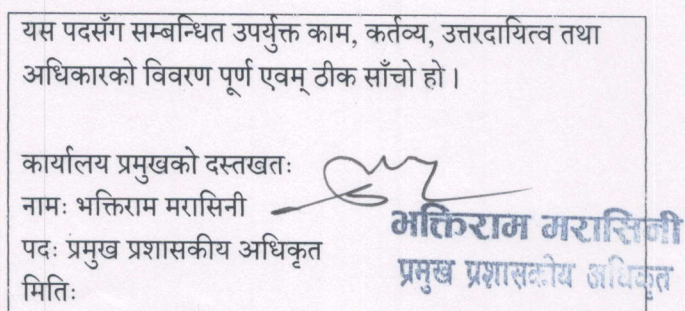 यस पदसँग सम्बन्धित उपर्युक्त काम, कर्तव्य, उत्तरदायित्व तथा
अधिकारको विवरण पूर्ण एवम् ठीक साँचो हो।
कार्यालय प्रमुखको दस्तखतः
नामः भक्तिराम मरासिनी
पदः प्रमुख प्रशासकीय अधिकृत
मितिः
भक्तिराम मरासिनी
प्रमुख प्रशासकीय अधिकृत